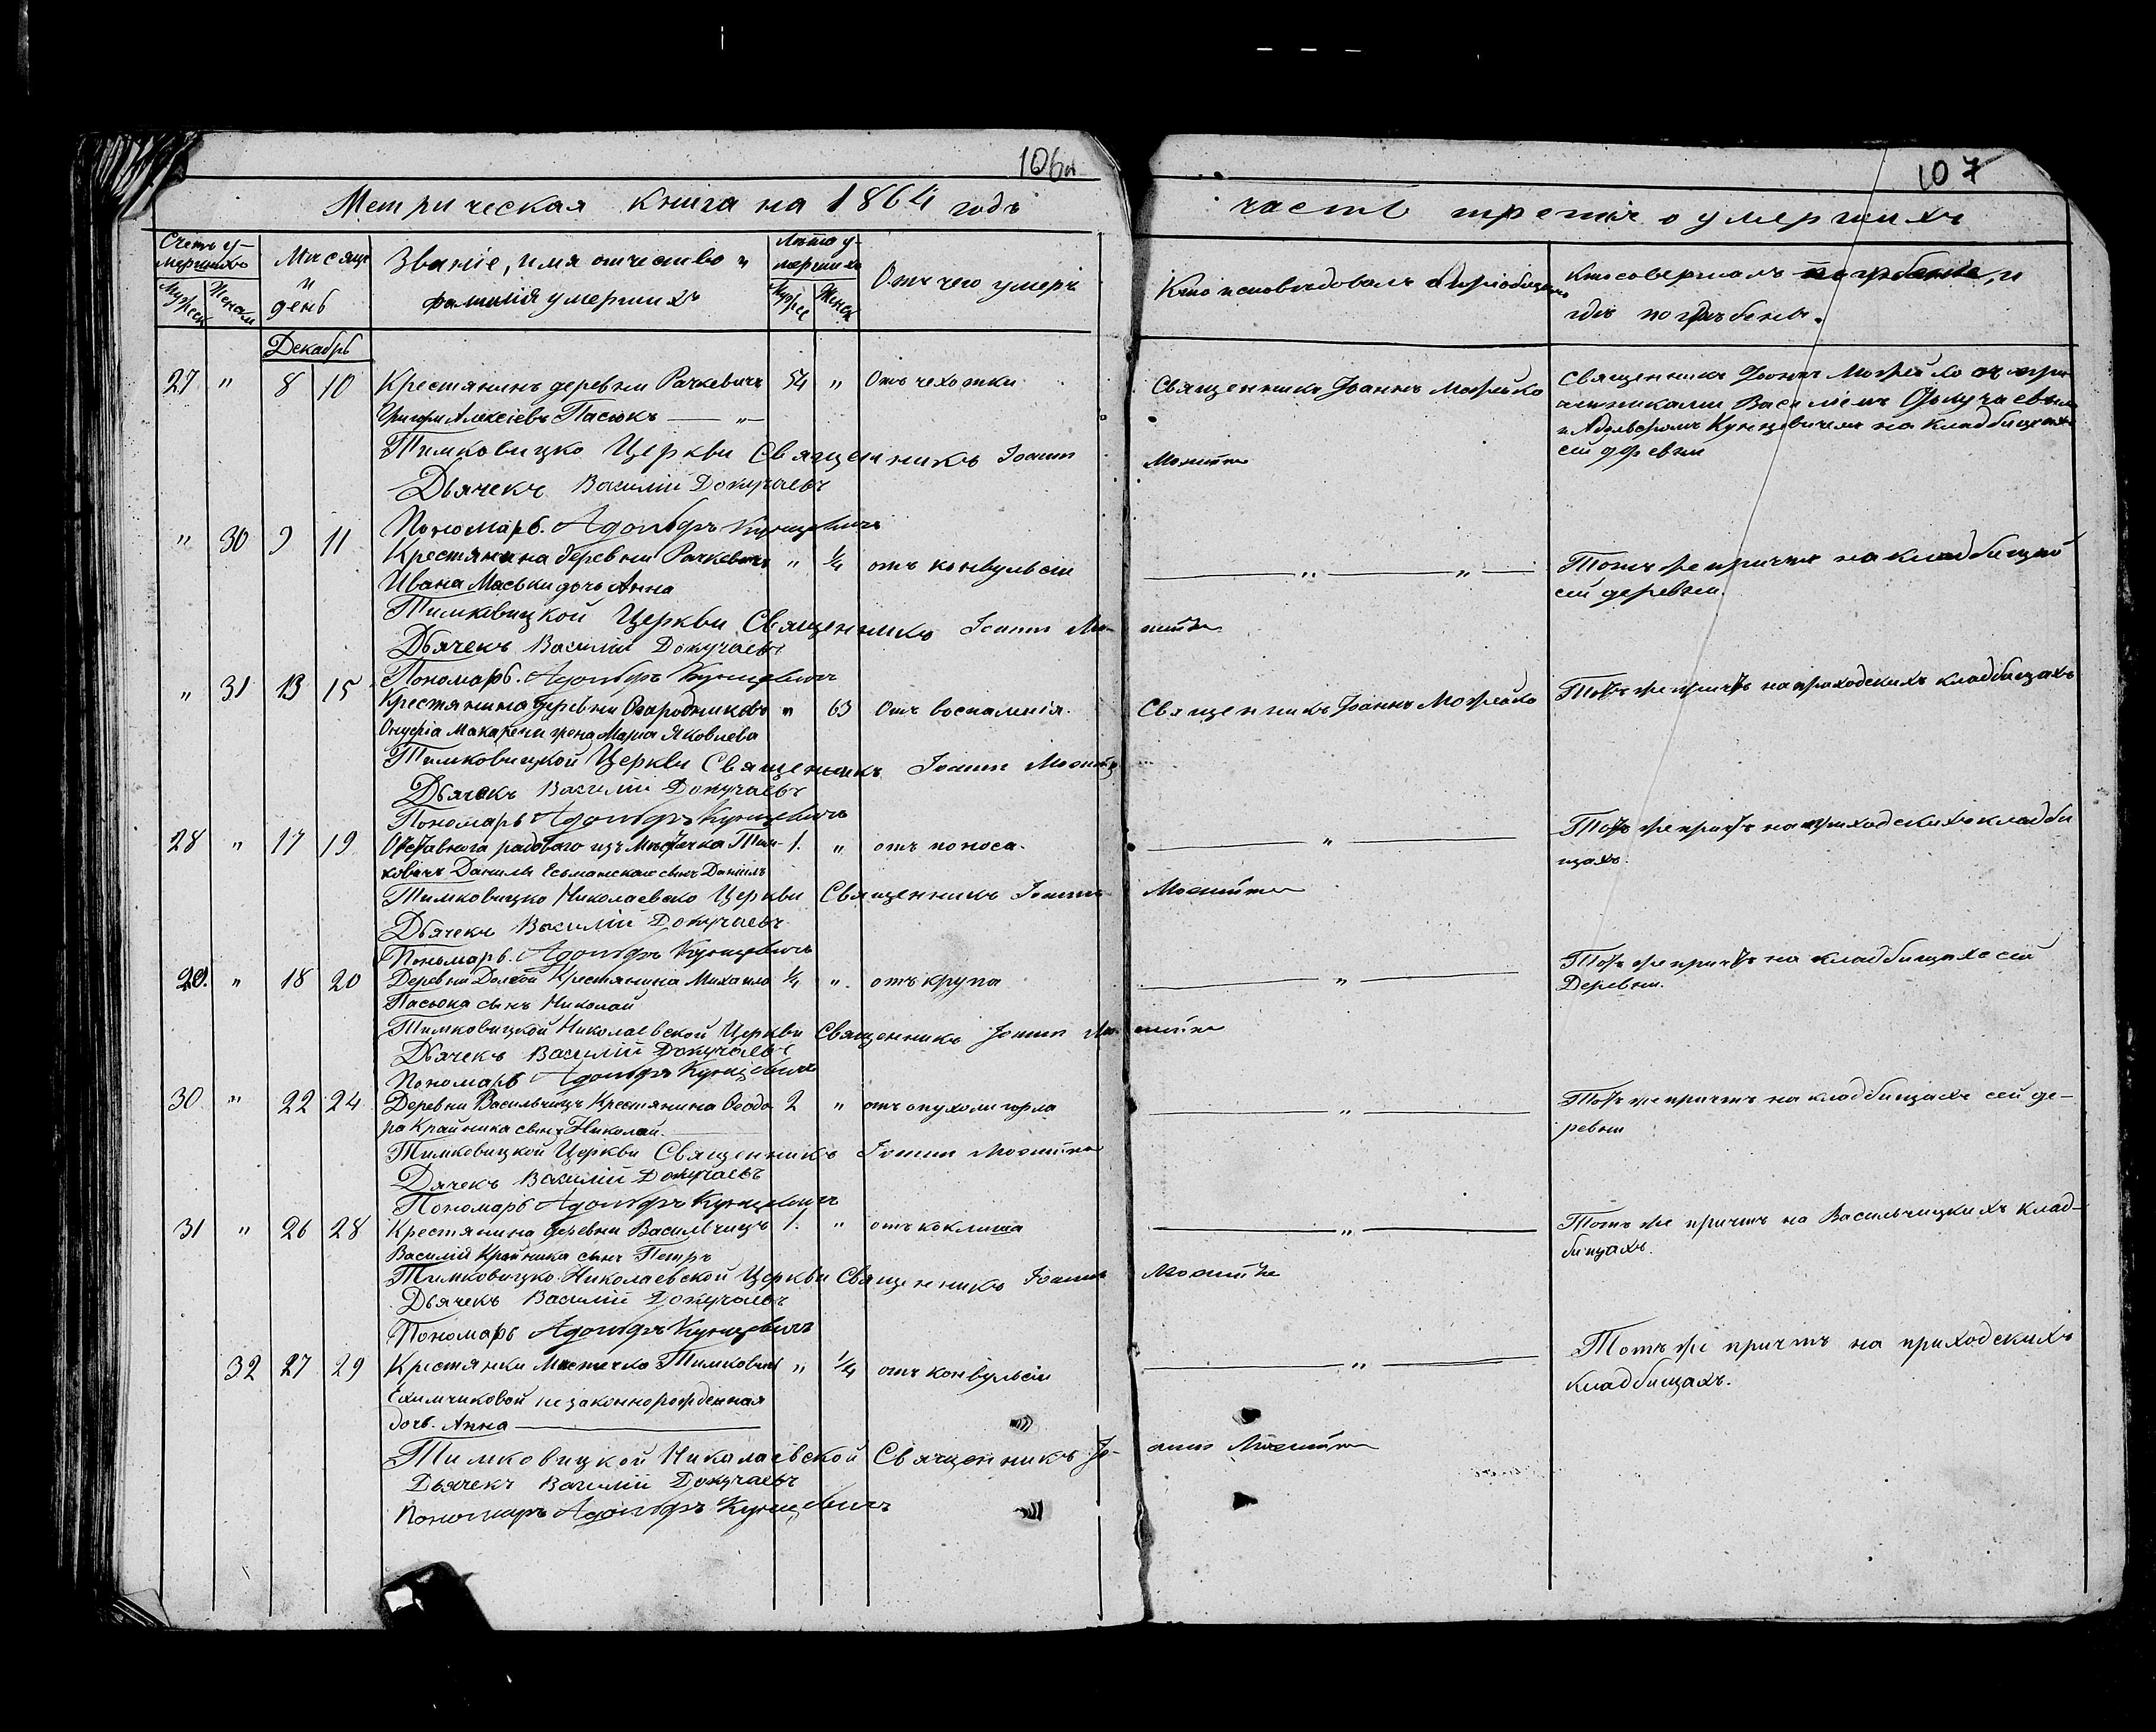 106
107
Метрическая книга на 1864 годъ
часть третія о умершихъ
Счетъ у-
мершихъ
Мужеск
Женск
Мѣсяцъ
и
день
Званіе, имя отчество и
фамилія умершихъ
Лѣто у-
мершихъ
Мужес
Женск
Отъ чего умеръ
Кто исповѣдовалъ и пріобщалъ
Кто совершалъ погребеніе, и
гдѣ погребены.
Декабрь
27 " 8 10 Крестянинъ деревни Рачкевичъ 54 " Отъ чехотки Священникъ Іоаннъ Можейко Священникъ Іоаннъ Можейко съ при
Григори Алексіевъ Пасюкъ — " —
четниками Василіемъ Докучаевымъ
и Адольфомъ Кунцевичемъ на кладбищахъ
сей деревни
Тимковицко Церкви Священникъ Іоаннъ Можейко
Дьячекъ Василій Докучаевъ
Пономарь. Адольфъ Кунцевичъ
" 30 9 11 Крестянина деревни Рачкевичъ " ¼ отъ конвульсіи — " — " — Тотъ же причтъ на кладбищахъ
Ивана Маськи дочь Анна
сей деревни.
Тимковицкой Церкви Священникъ Іоаннъ Можейко
Дьячекъ Василій Докучаевъ
Пономарь. Адольфъ Кунцевичъ
" 31 13 15 Крестянина деревни Огародниковъ " 63 Отъ воспаленія. Священникъ Іоаннъ Можейко Тотъ же причтъ на приходскихъ кладбищахъ
Онуфріа Макарени жена Марія Яковлева
Тимковицкой Церкви Священникъ Іоаннъ Можейко
Дьячекъ Василій Докучаевъ
Пономарь Адольфъ Кунцевичъ
28 " 17 19 Отставнога радового изъ Мѣстечка Тим- 1. " отъ поноса. — " — Тотъ же причтъ на приходскихъ кладби
ковичъ Данилы сынъ Даніилъ
щахъ.
Тимковицко Николаевско Церкви Священникъ Іоаннъ Можейко
Дьячекъ Василій Докучаевъ
Пономарь. Адольфъ Кунцевичъ
29. " 18 20 Деревни Долгой Крестянина Михаила ¼ ". отъ крупа — " — Тотъ же причтъ на кладбищахъ сей
Пасюка сынъ Николай
Деревни.
Тимковицкой Николаевской Церкви Священникъ Іоаннъ Можейко
Дьячекъ Василій Докучаевъ
Пономарь Адольфъ Кунцевичъ
30 " 22 24 Деревни Васильчицъ Крестянина Ѳеодо 2 " отъ опухоли горла — " — Тотъ же причтъ на кладбищахъ сей де-
ра Крайника сынъ Николай.
ревни
Тимковицкой Церкви Священникъ Іоаннъ Можейко
Дячекъ Василій Докучаевъ
Пономарь Адольфъ Кунцевичъ
31 " 26 28 Крестянина деревни Васильчицъ 1. " отъ коклюша — " — Тотъ же причтъ на Васильчицкихъ клад-
Василія Крайника сынъ Петръ
бищахъ.
Тимковицко Николаевской Церкви Священникъ Іоаннъ Можейко
Дьячекъ Василій Докучаевъ
Пономарь Адольфъ Кунцевичъ
32 27 29 Крестянки Мѣстечко Тимковичъ " ¼ отъ конвульсіи — " — Тотъ же причтъ на приходскихъ
Ехимчиковой незаконнорожденная
кладбищахъ.
дочь. Анна —
Тимковицкой Николаевской Священникъ Іо- аннъ Можейко
Дьячекъ Василій Докучаевъ
Пономаръ Адольфъ Кунцевичъ